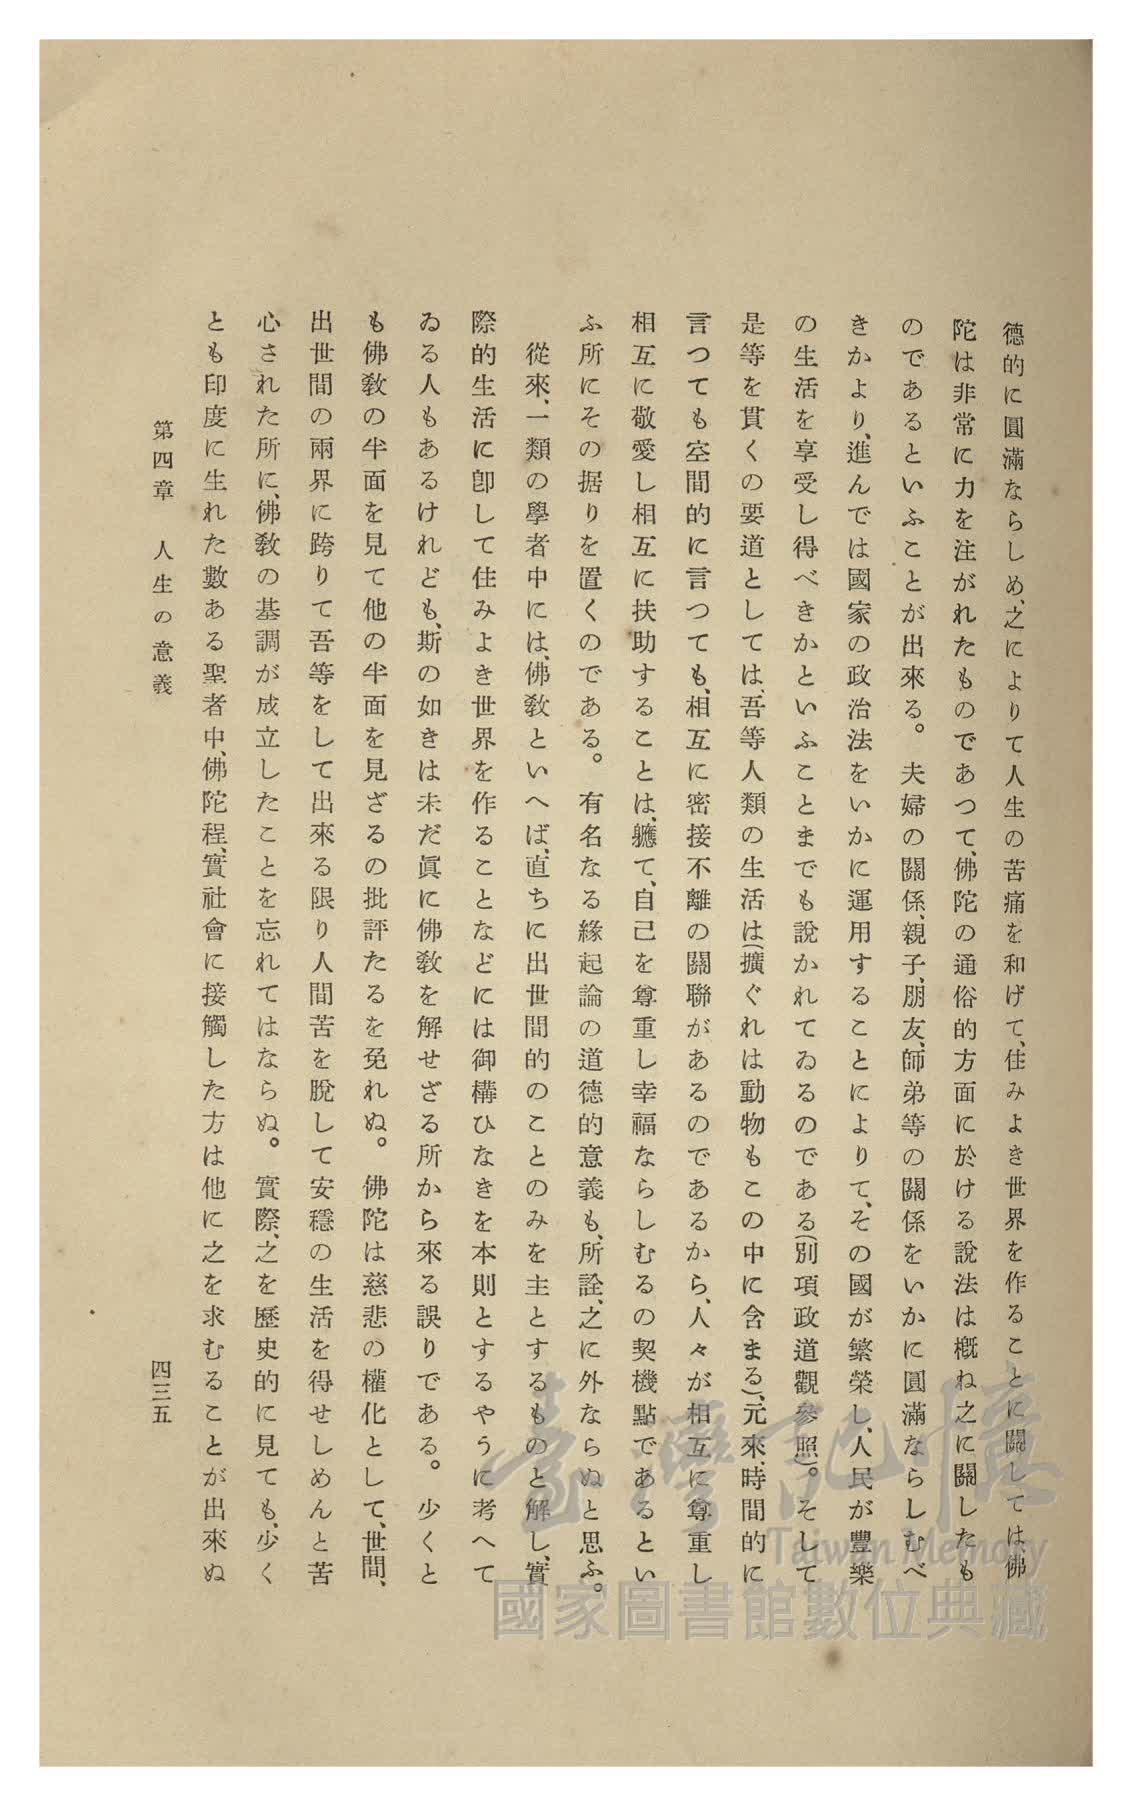 德的に圓滿ならしめ、之によりて人生の苦痛を和げて、住みよき世界を作ることに關しては、佛
陀は非常に力を注がれたものであつて、佛陀の通俗的方面に於ける說法は槪ね之に關したも
のであるといふことが出來る。夫婦の關係、親子、朋友、師弟等の關係をいかに圓滿ならしむべ
きかより、進んでは國家の政治法をいかに運用することによりて、その國が繁榮し、人民が豐樂
の生活を享受し得べきかといふことまでも說かれてゐるのである(別項政道觀參照)。そして
是等を貫くの要道としては、吾等人類の生活は(擴ぐれは動物もこの中に含まる)、元來、時間的に
言つても空間的に言つても、相互に密接不離の關聯があるのであるから、人々が相互に尊重し
相互に敬愛し相互に扶助することは、軈て、自己を尊重し幸福ならしむるの契機點であるとい
ふ所にその据りを置くのである。有名なる緣起論の道德的意義も、所詮、之に外ならぬと思ふ。
從來、一類の學者中には、佛敎といへば、直ちに出世間的のことのみを主とするものと解し、實
際的生活に卽して住みよき世界を作ることなどには御構ひなきを本則とするやうに考へて
ゐる人もあるけれども、斯の如きは未だ眞に佛敎を解せざる所から來る誤りである。少くと
も佛敎の半面を見て他の半面を見ざるの批評たるを免れぬ。佛陀は慈悲の權化として、世間、
出世間の兩界に跨りて吾等をして出來る限り人間苦を脫して安穩の生活を得せしめんと苦
心された所に、佛敎の基調が成立したことを忘れてはならぬ。實際、之を歷史的に見ても、少く
とも印度に生れた數ある聖者中、佛陀程、實社會に接觸した方は他に之を求むることが出來ぬ
第四章 人生の意義
四三五
臺灣記憶
Taiwan Memory
國家圖書館數位典藏